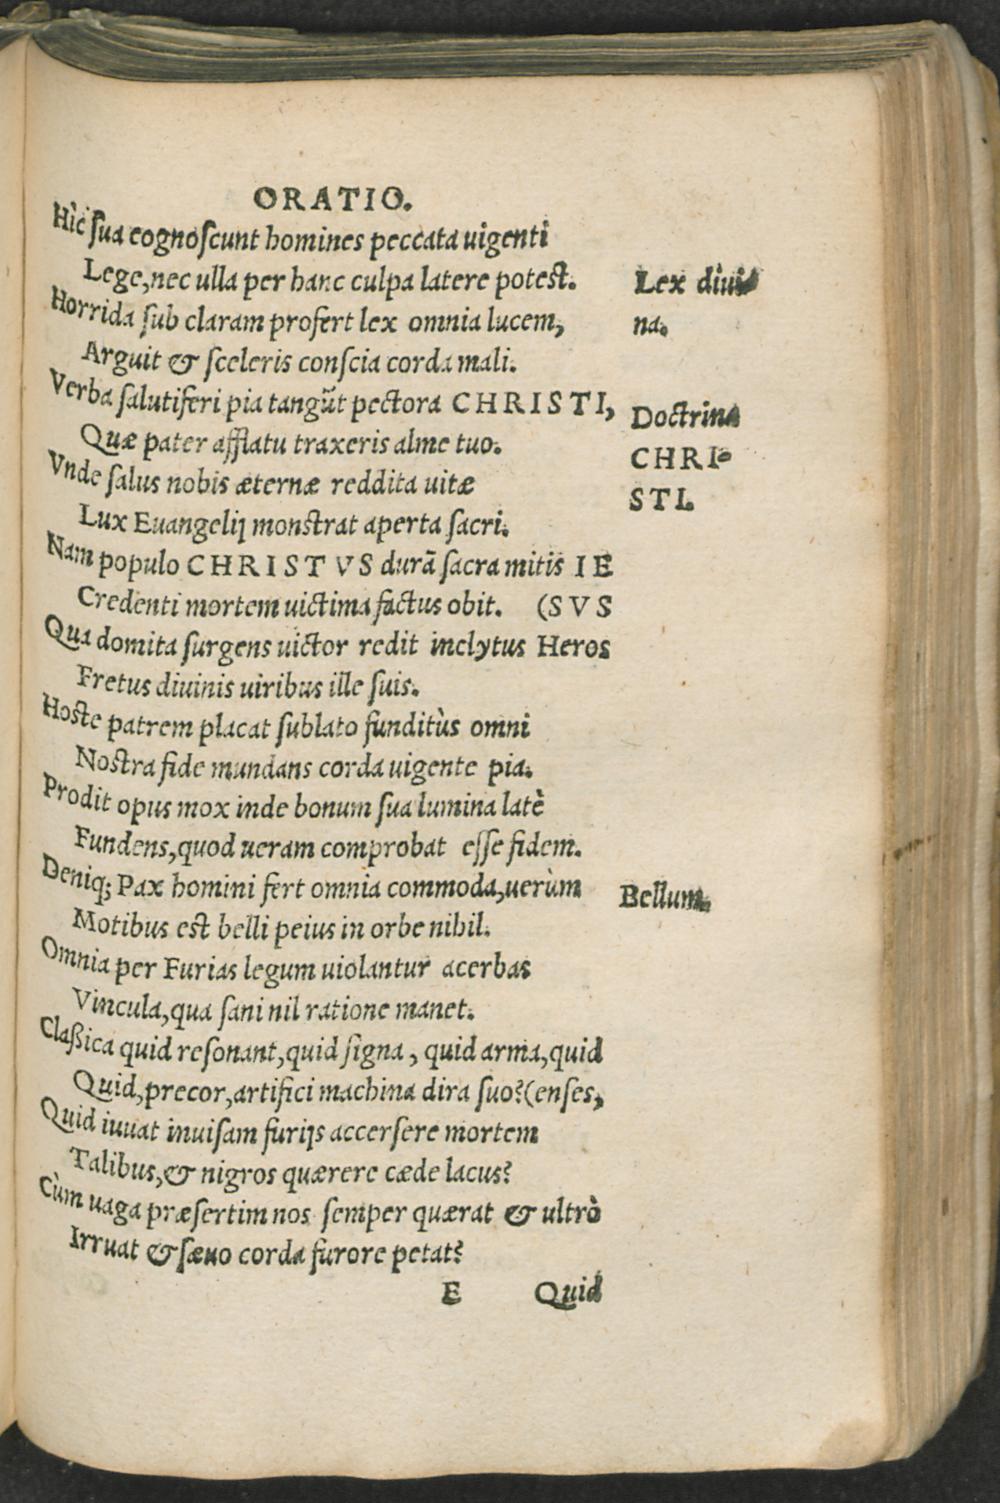 ORATIO.
Hìc ſua cognoſcunt homines peccata uigenti
Lege, nec ulla per hanc culpa latere poteſt.
Lex diui
Horrida ſub claram profert lex omnia lucem,
na.
Arguit & ſceleris conſcia corda mali.
Verba ſalutiferi pia tangūt pectora CHRISTI,
Doctrina
Quæ pater afflatu traxeris alme tuo.
CHRI-
Vnde ſalus nobis æternæ reddita uitæ
STI.
Lux Euangelij monſtrat aperta ſacri.
Nam populo CHRISTVS durā ſacra mitis IE
Credenti mortem uictima factus obit. (SVS
Qua domita ſurgens uictor redit inclytus Heros
Fretus diuinis uiribus ille ſuis.
Hoſte patrem placat ſublato funditùs omni
Noſtra fide mundans corda uigente pia.
Prodit opus mox inde bonum ſua lumina latè
Fundens, quod ueram comprobat eſſe fidem.
Deniq; Pax homini fert omnia commoda, uerùm
Bellum.
Motibus eſt belli peius in orbe nihil.
Omnia per Furias legum uiolantur acerbas
Vincula, qua ſani nil ratione manet.
Claßica quid reſonant, quid ſigna, quid arma, quid
Quid, precor, artifici machina dira ſuo? (enſes,
Quid iuuat inuiſam furijs accerſere mortem
Talibus, & nigros quærere cæde lacus?
Cùm uaga præſertim nos ſemper quærat & ultrò
Irruat & ſæuo corda furore petat?
E Quid